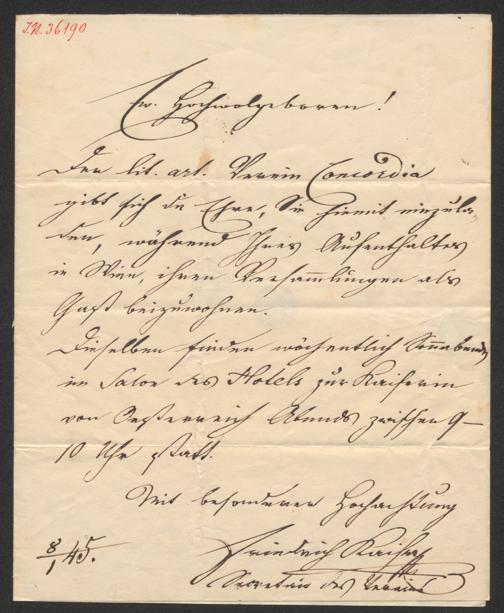 I.N. 36190
Ew. Hochwolgeboren!
Der lit. art. Verein Concordia
gibt sich die Ehre, Sie hiemit einzula-
den, während Ihres Aufenthaltes
in Wien, ihren Versammlungen als
Gast beizuwohnen.
Dieselben finden wöchentlich Sonnabends
im Salon des Hotels zur Kaiserin
von Oesterreich Abends zwischen 9-
10 Uhr statt.
Mit besonderer Hochachtung
Friedrich Kaiser
Secretär des Vereins
8/1 45.